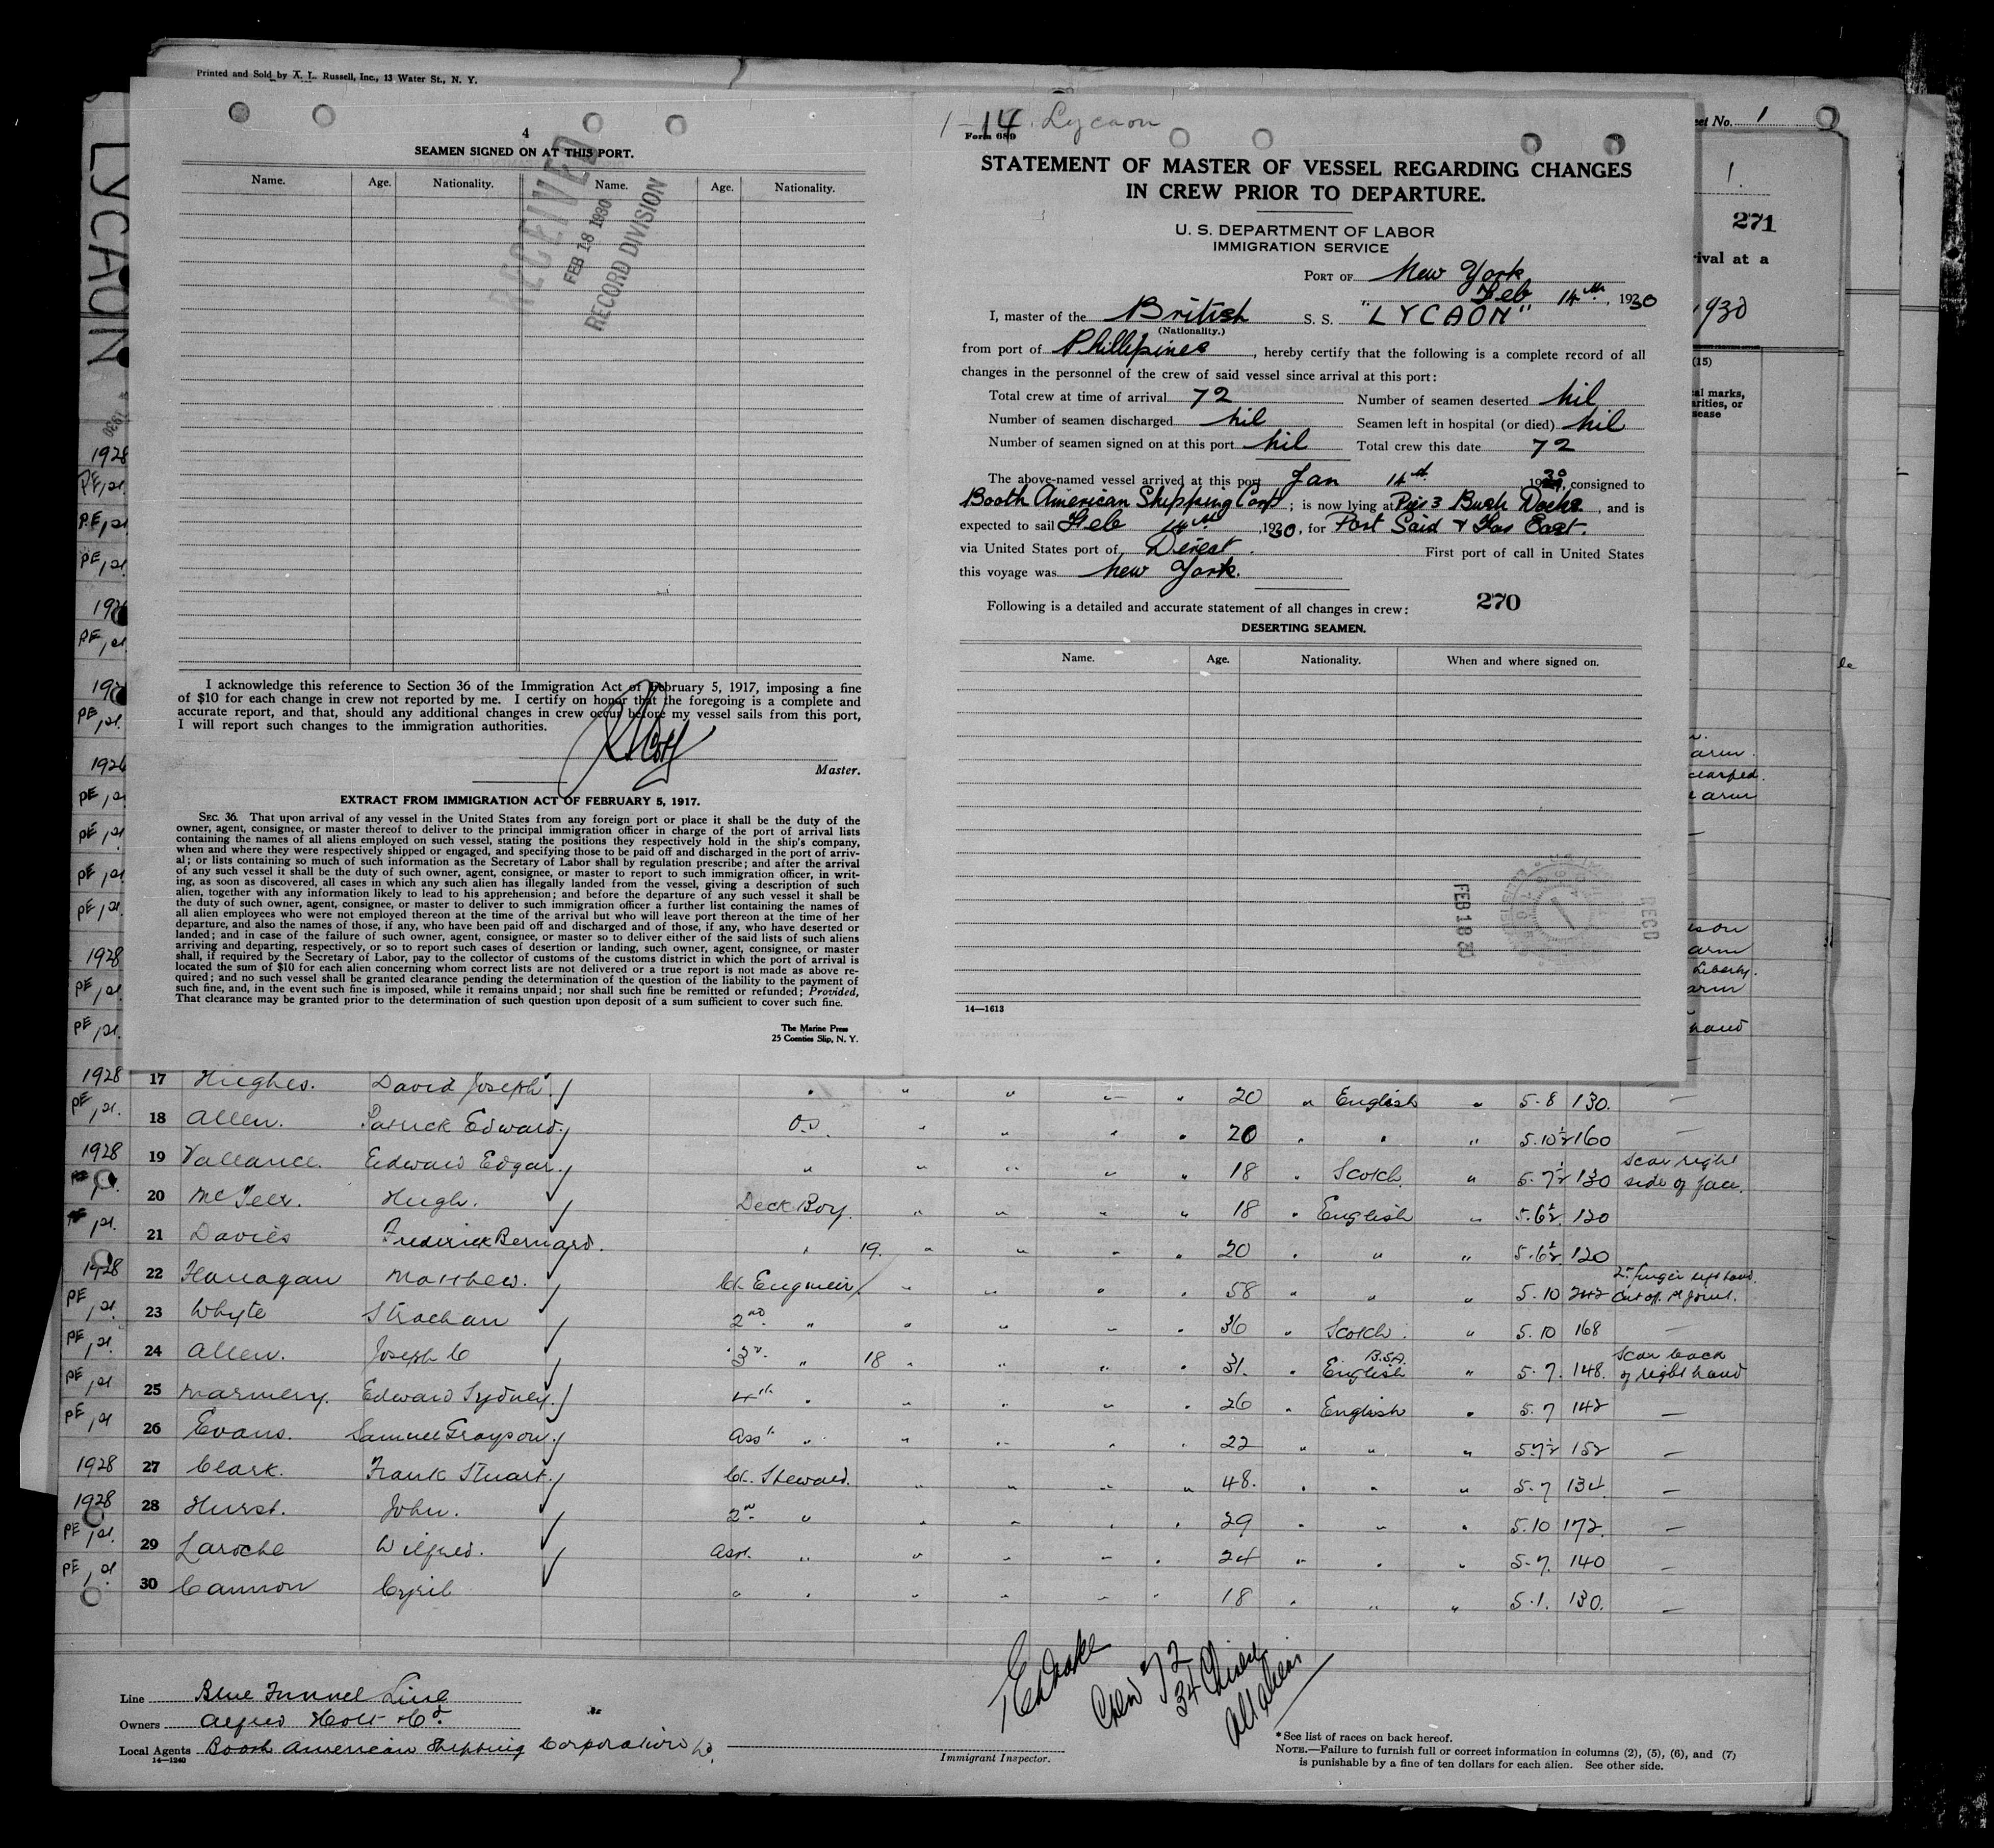 Printed and Sold by A. L. Russell, Inc., 13 Water St., N. Y.
LYCAON
4
SEAMEN SIGNED ON AT THIS PORT.
Name. Age. Nationality. Name. Age. Nationality.
RECEIVED
FEB 18 1930
RECORD DIVISION
I acknowledge this reference to Section 36 of the Immigration Act of February 5, 1917, imposing a fine
of $10 for each change in crew not reported by me. I certify on honor that the foregoing is a complete and
accurate report, and that, should any additional changes in crew occur before my vessel sails from this port,
I will report such changes to the immigration authorities.
Master.
EXTRACT FROM IMMIGRATION ACT OF FEBRUARY 5, 1917.
SEC. 36. That upon arrival of any vessel in the United States from any foreign port or place it shall be the duty of the
owner, agent, consignee, or master thereof to deliver to the principal immigration officer in charge of the port of arrival lists
containing the names of all aliens employed on such vessel, stating the positions they respectively hold in the ship's company,
when and where they were respectively shipped or engaged, and specifying those to be paid off and discharged in the port of arriv-
al; or lists containing so much of such information as the Secretary of Labor shall by regulation prescribe; and after the arrival
of any such vessel it shall be the duty of such owner, agent, consignee, or master to report to such immigration officer, in writ-
ing, as soon as discovered, all cases in which any such alien has illegally landed from the vessel, giving a description of such
alien, together with any information likely to lead to his apprehension; and before the departure of any such vessel it shall be
the duty of such owner, agent, consignee, or master to deliver to such immigration officer a further list containing the names of
all alien employees who were not employed thereon at the time of the arrival but who will leave port thereon at the time of her
departure, and also the names of those, if any, who have been paid off and discharged and of those, if any, who have deserted or
landed; and in case of the failure of such owner, agent, consignee, or master so to deliver either of the said lists of such aliens
arriving and departing, respectively, or so to report such cases of desertion or landing, such owner, agent, consignee, or master
shall, if required by the Secretary of Labor, pay to the collector of customs of the customs district in which the port of arrival is
located the sum of $10 for each alien concerning whom correct lists are not delivered or a true report is not made as above re-
quired; and no such vessel shall be granted clearance pending the determination of the question of the liability to the payment of
such fine, and, in the event such fine is imposed, while it remains unpaid; nor shall such fine be remitted or refunded; Provided,
That clearance may be granted prior to the determination of such question upon deposit of a sum sufficient to cover such fine.
The Marine Press
25 Coenties Slip, N. Y.
1-14 Lycaon
Form 689
STATEMENT OF MASTER OF VESSEL REGARDING CHANGES
IN CREW PRIOR TO DEPARTURE.
U. S. DEPARTMENT OF LABOR
IMMIGRATION SERVICE
PORT OF New York
Feb 14th, 1930
I, master of the British S. S. "LYCAON"
(Nationality.)
from port of Phillipines, hereby certify that the following is a complete record of all
changes in the personnel of the crew of said vessel since arrival at this port:
Total crew at time of arrival 72 Number of seamen deserted nil
Number of seamen discharged nil Seamen left in hospital (or died) nil
Number of seamen signed on at this port nil Total crew this date 72
The above-named vessel arrived at this port Jan 14th 1930, consigned to
Booth American Shipping Corp; is now lying at Pier 3 Bush Docks, and is
expected to sail Feb 14th, 1930, for Port Said & Far East.
via United States port of Direct. First port of call in United States
this voyage was New York.
Following is a detailed and accurate statement of all changes in crew: 270
DESERTING SEAMEN.
Name. Age. Nationality. When and where signed on.
FEB 18 30
RECD
14—1613
Sheet No. 1
1.
271
rival at a
1930
(15)
al marks,
arities, or
sease
arm.
arm
arm
Liberty.
arm
hand
1928 17 Hughes. David Joseph. " " " " " 20 " English " 5-8 130. —
18 Allen. Patrick Edward. O.S. " " " " 20 " " " 5.10½ 160 —
1928 19 Vallance. Edward Edgar. " " " " " 18 " Scotch. " 5.7½ 130 Scar right side of face.
20 McTeer. Hugh. Deck Boy. " " " " 18 " English " 5.6½ 120
21 Davies Frederick Bernard. " 19. " " " " 20 " " " 5.6½ 120
1928 22 Flanagan Matthew. Ch. Engineir " " " " 58 " " " 5.10 242 2nd finger left hand. Cut off at joint.
23 Whyte Strachan 2nd " " " " " 36 " Scotch. " 5.10 168 —
24 Allen. Joseph C 3rd " 18 " " " " 31. " B.S.A. English " 5.7. 148. Scar back of right hand
25 Marmery. Edward Sydney. 4th " " " " " 26 " English " 5.7 142 —
26 Evans. Samuel Grayson. Asst " " " " " 22 " " " 5.7½ 152 —
1928 27 Clark. Frank Stuart. Ch. Steward. " " " " 48. " " " 5.7 134 —
1928 28 Hurst. John. 2nd " " " " " 29 " " " 5.10 172. —
29 Laroche Wilfred. Asst. " " " " " 24 " " " 5-7. 140 —
30 Cannon Cyril " " " " " " 18 " " " 5.1. 130. —
Crew 72
34 Chinese
All aliens
Line Blue Funnel Line
Owners Alfred Holt & Co.
Local Agents Booth American Shipping Corporation
14—1240
Immigrant Inspector.
*See list of races on back hereof.
NOTE.—Failure to furnish full or correct information in columns (2), (5), (6), and (7)
is punishable by a fine of ten dollars for each alien. See other side.